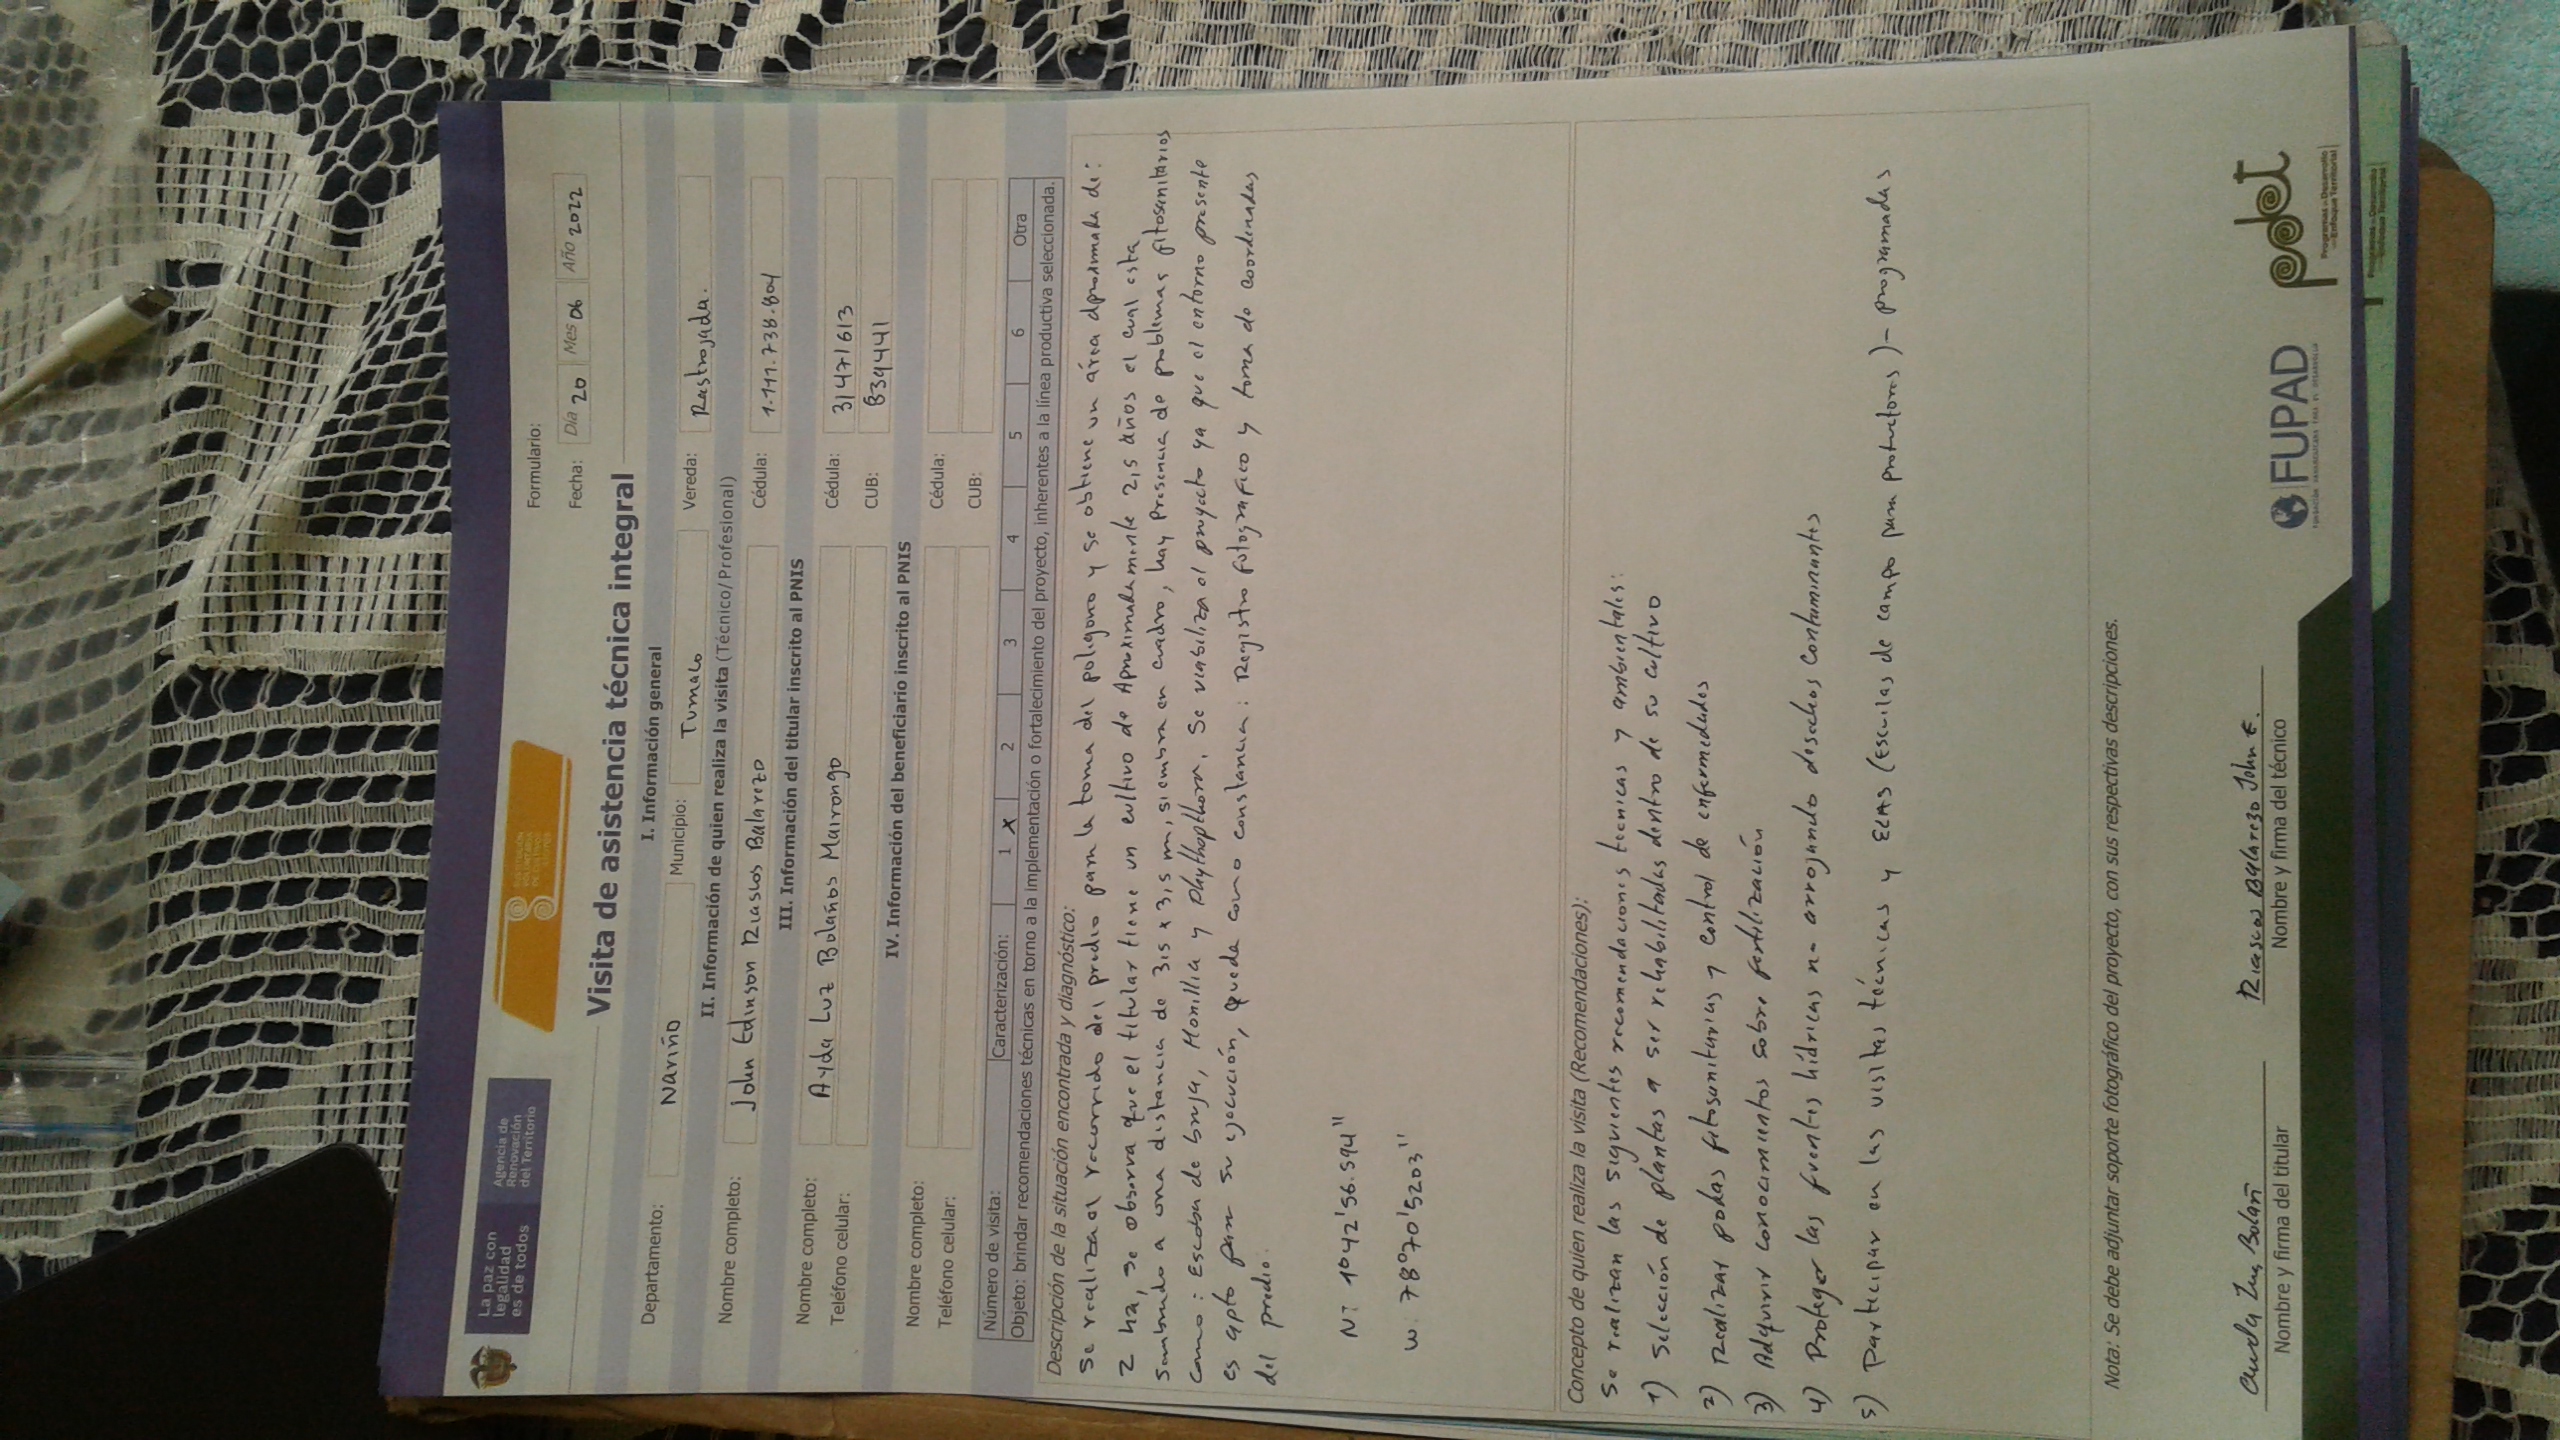 La paz con
legalidad
es de todos
Agencia de
Renovación
del Territorio
SUSTITUCIÓN
VOLUNTARIA
DE CULTIVOS
Formulario:
Fecha: Día 20 Mes 06 Año 2022
Visita de asistencia técnica integral
I. Información general
Departamento: Nariño Municipio: Tumaco Vereda: Rastrojada.
II. Información de quien realiza la visita (Técnico/Profesional)
Nombre completo: John Edinson Riascos Balarezo Cédula: 1.111.738.804
III. Información del titular inscrito al PNIS
Nombre completo: Ayda Luz Bolaños Mairongo Cédula: 31471613
Teléfono celular: CUB: 839441
IV. Información del beneficiario inscrito al PNIS
Nombre completo: Cédula:
Teléfono celular: CUB:
Número de visita: Caracterización: 1 X 2 3 4 5 6 Otra
Objeto: brindar recomendaciones técnicas en torno a la implementación o fortalecimiento del proyecto, inherentes a la línea productiva seleccionada.
Descripción de la situación encontrada y diagnóstico:
Se realiza el recorrido del predio para la toma del poligono y se obtiene un área aproximada de:
2 ha, se observa que el titular tiene un cultivo de Aproximadamente 2,5 años el cual esta
sembrado a una distancia de 3,5 x 3,5 m, siembra en cuadro, hay presencia de problemas fitosanitarios
como: Escoba de bruja, Monilia y phythopthora, Se viabiliza el proyecto ya que el entorno presente
es apto para su ejecución, queda como constancia: Registro fotografico y toma de coordenadas
del predio.
N: 1°42'56.594"
W: 78°70'5203"
Concepto de quien realiza la visita (Recomendaciones):
Se realizan las siguientes recomendaciones tecnicas y ambientales:
1) Selección de plantas a ser rehabilitadas dentro de su cultivo
2) Realizar podas fitosanitarias y control de enfermedades
3) Adquirir conocimientos sobre fertilización
4) Proteger las fuentes hídricas no arrojando desechos contaminantes
5) Participar en las visitas técnicas y ECAS (Escuelas de campo para productores) - programadas
Nota: Se debe adjuntar soporte fotográfico del proyecto, con sus respectivas descripciones.
Luz Bolañ
Nombre y firma del titular
Riascos Balarezo John E.
Nombre y firma del técnico
FUPAD
pdet
Programas de Desarrollo
con Enfoque Territorial